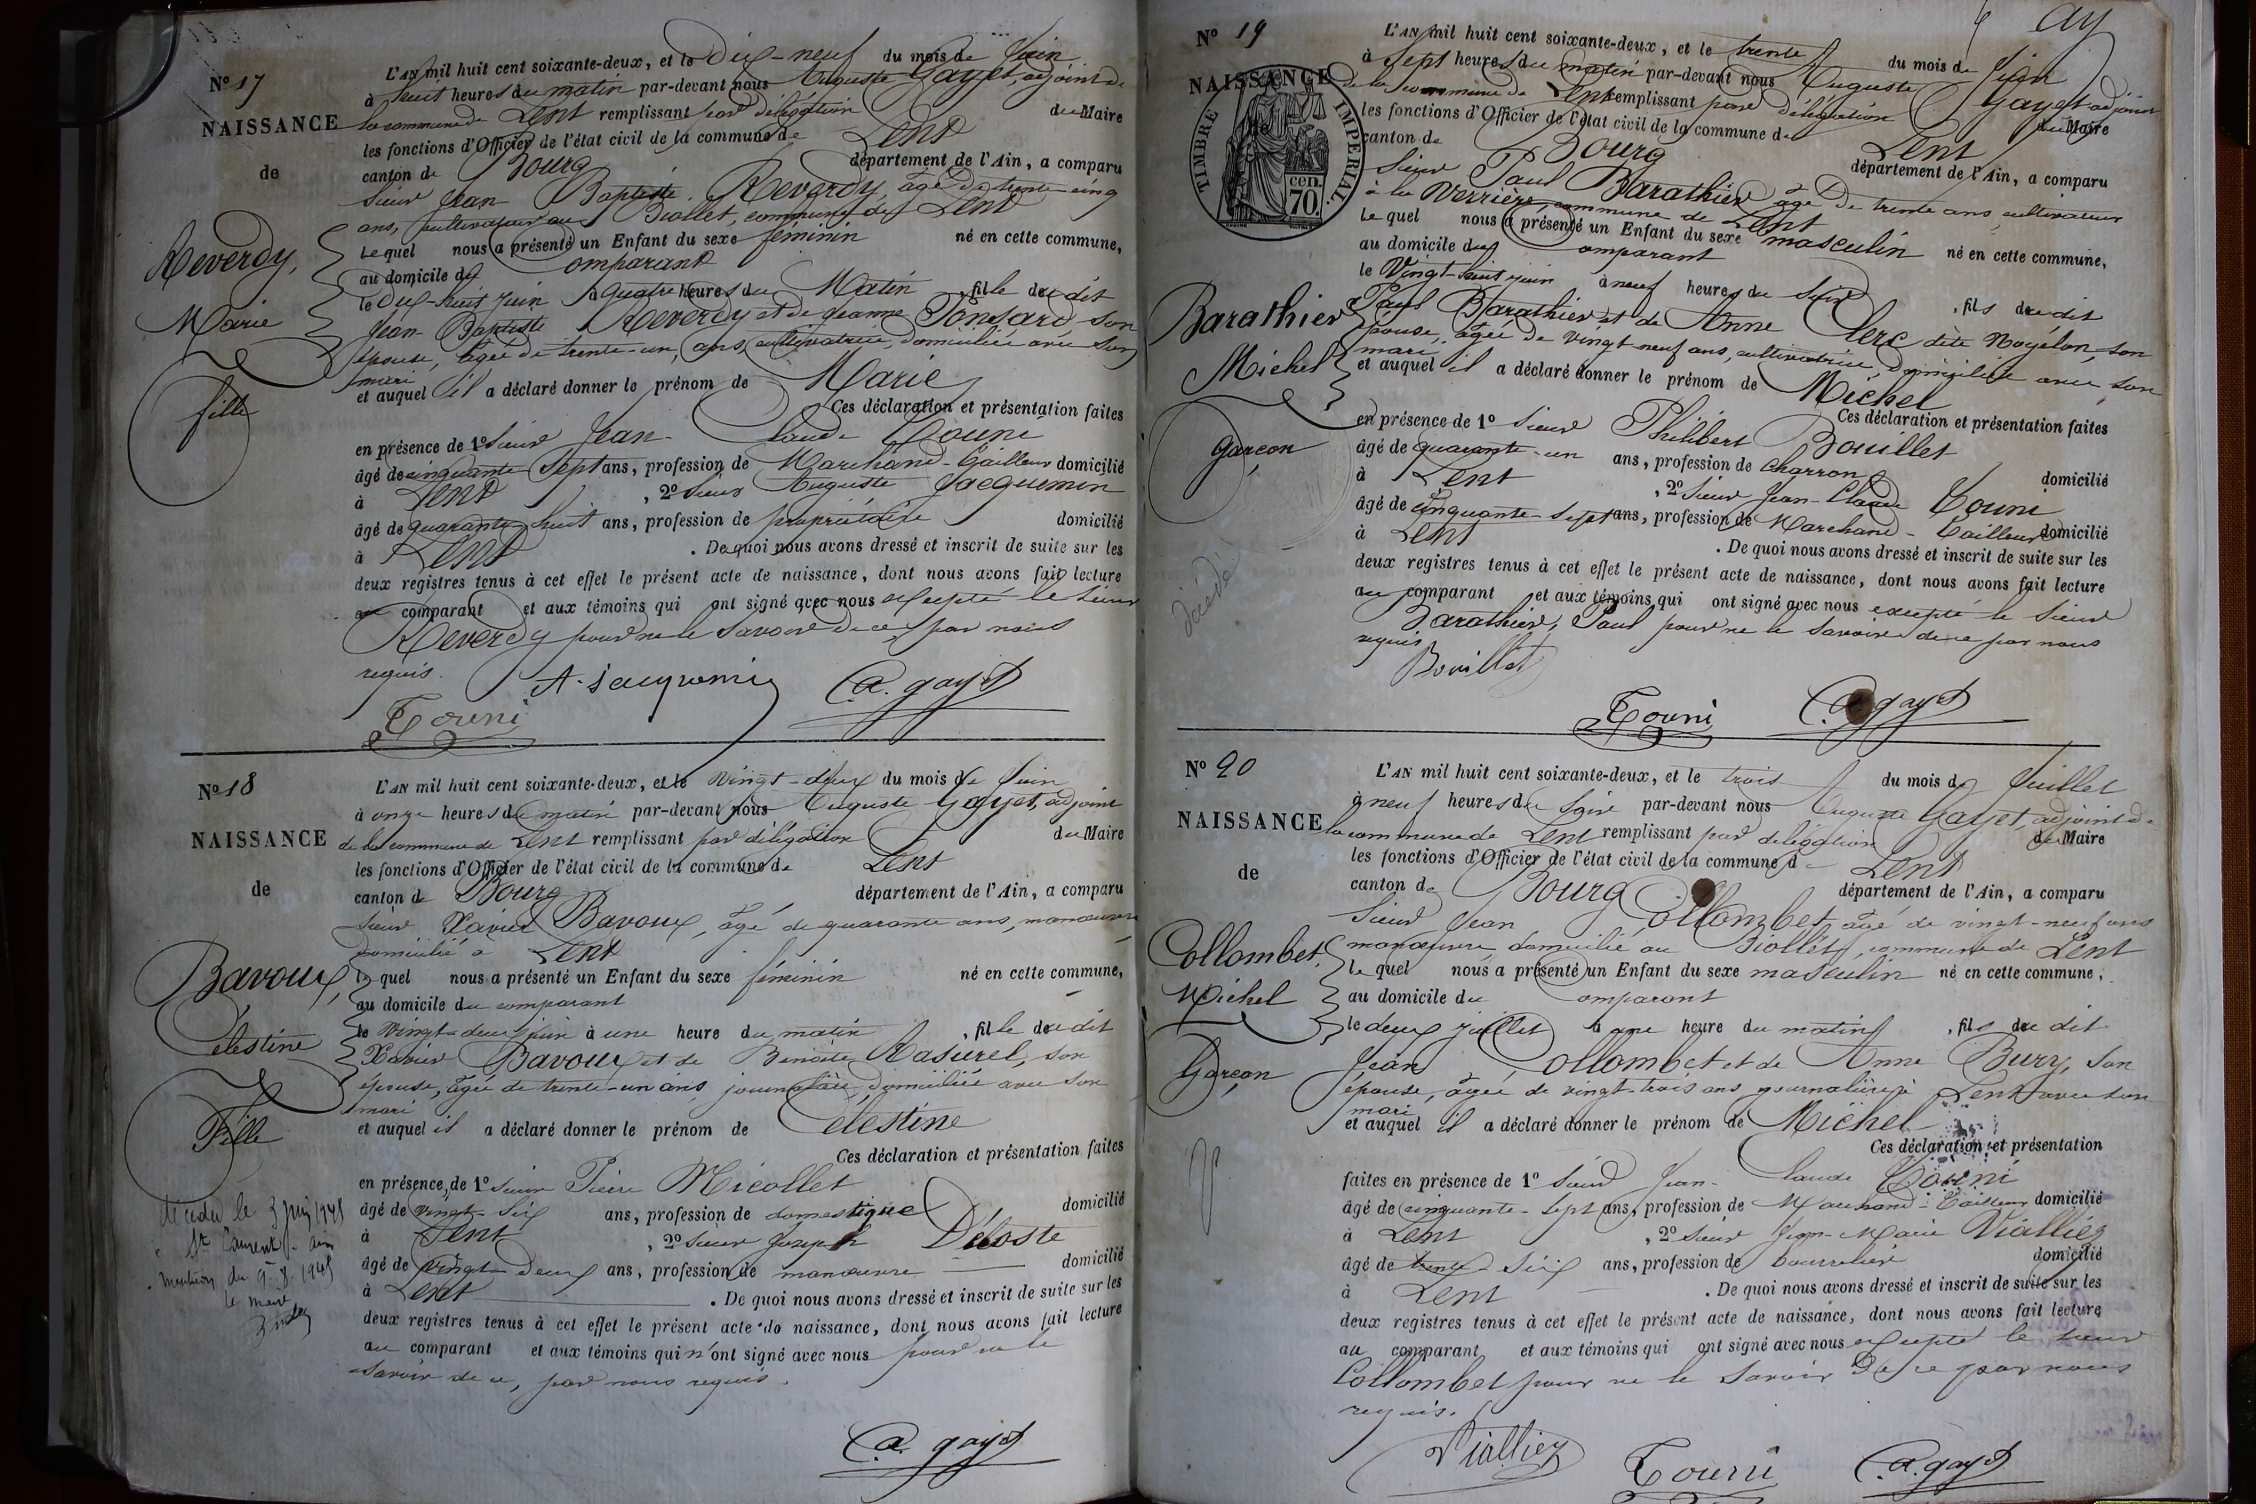 N° 17
NAISSANCE
de
Reverdy,
Marie
fille
L'AN mil huit cent soixante-deux, et le Dix-neuf du mois de Juin
à huit heures du matin par-devant nous Auguste Gayet, adjoint de
la commune de Lent remplissant par délégation du Maire
les fonctions d'Officier de l'état civil de la commune de Lent
canton de Bourg département de l'Ain, a comparu
sieur Jean Baptiste Reverdy âgé de trente-cinq
ans, cultivateur au Biollet, commune de Lent
Lequel nous a présenté un Enfant du sexe féminin né en cette commune,
au domicile du Comparant
le dix-huit juin à quatre heures du Matin, fille du dit
Jean Baptiste Reverdy et de Jeanne Ponsard, son
épouse, âgée de trente-un ans, cultivatrice, domiciliée avec son
mari
et auquel il a déclaré donner le prénom de Marie
Ces déclaration et présentation faites
en présence de 1° sieur Jean-Claude Touni
âgé de cinquante sept ans, profession de Marchand-Tailleur domicilié
à Lent, 2° sieur Auguste Jacquemin
âgé de quarante huit ans, profession de propriétaire domicilié
à Lent. De quoi nous avons dressé et inscrit de suite sur les
deux registres tenus à cet effet le présent acte de naissance, dont nous avons fait lecture
au comparant et aux témoins qui ont signé avec nous excepté le sieur
Reverdy pour ne le savoir de ce par nous
requis.
A. Jacquemin
a. gayet
Touni
N° 18
NAISSANCE
de
Bavoux,
Célestine
Fille
décédée le 3 juin 1945
St Laurent - Ain
mention du 9-8-1945
le maire
L'AN mil huit cent soixante-deux, et le vingt-deux du mois de Juin
à onze heures du matin par-devant nous Auguste Gayet, adjoint
de la commune de Lent remplissant par délégation du Maire
les fonctions d'Officier de l'état civil de la commune de Lent
canton de Bourg département de l'Ain, a comparu
sieur Xavier Bavoux, âgé de quarante ans, manœuvre
domicilié à Lent
le quel nous a présenté un Enfant du sexe féminin né en cette commune,
au domicile du comparant
le vingt-deux juin à une heure du matin, fille du dit
Xavier Bavoux et de Benoîte Rasurel, son
épouse, âgée de trente-un ans, journalière, domiciliée avec son
mari
et auquel il a déclaré donner le prénom de Célestine
Ces déclaration et présentation faites
en présence, de 1° sieur Pierre Micollet
âgé de vingt-six ans, profession de domestique domicilié
à Lent, 2° sieur Joseph Déloste
âgé de vingt-deux ans, profession de manœuvre domicilié
à Lent. De quoi nous avons dressé et inscrit de suite sur les
deux registres tenus à cet effet le présent acte de naissance, dont nous avons fait lecture
au comparant et aux témoins qui n'ont signé avec nous pour ne le
savoir de ce, par nous requis.
a. gayet
N° 19
NAISSANCE
TIMBRE IMPÉRIAL.
70 cen.
Barathier
Michel
garçon
décédé
L'AN mil huit cent soixante-deux, et le trente du mois de Juin
à Sept heures du matin par-devant nous Auguste Gayet adjoint
de la commune de Lent remplissant par délégation du Maire
les fonctions d'Officier de l'état civil de la commune de Lent
canton de Bourg département de l'Ain, a comparu
Sieur Paul Barathier âgé de trente ans cultivateur
à la Verrière, commune de Lent
Le quel nous a présenté un Enfant du sexe masculin né en cette commune,
au domicile du Comparant
le Vingt-huit juin à neuf heures du Soir, fils du dit
Paul Barathier et de Anne Clerc dite Nogélon, son
épouse, âgée de vingt-neuf ans, cultivatrice, domiciliée avec son
mari
et auquel il a déclaré donner le prénom de Michel
Ces déclaration et présentation faites
en présence de 1° Sieur Philibert Bouillet
âgé de quarante-un ans, profession de charron domicilié
à Lent, 2° Sieur Jean-Claude Touni
âgé de cinquante-sept ans, profession de Marchand-Tailleur domicilié
à Lent. De quoi nous avons dressé et inscrit de suite sur les
deux registres tenus à cet effet le présent acte de naissance, dont nous avons fait lecture
au comparant et aux témoins qui ont signé avec nous excepté le Sieur
Barathier, Paul pour ne le savoir de ce par nous
requis
Bouillet
Touni
a. gayet
N° 20
NAISSANCE
de
Collombet,
Michel
Garçon
L'AN mil huit cent soixante-deux, et le trois du mois de Juillet
à neuf heures du Soir par-devant nous Auguste Gayet, adjoint de
la commune de Lent remplissant par délégation du Maire
les fonctions d'Officier de l'état civil de la commune de Lent
canton de Bourg département de l'Ain, a comparu
Sieur Jean Collombet âgé de vingt-neuf ans
manœuvre domicilié au Biollet, commune de Lent
le quel nous a présenté un Enfant du sexe masculin né en cette commune,
au domicile du Comparant
le deux juillet à une heure du matin, fils du dit
Jean Collombet et de Anne Bury, son
épouse, âgée de vingt-trois ans journalière à Lent avec son
mari
et auquel il a déclaré donner le prénom de Michel
Ces déclaration et présentation
faites en présence de 1° sieur Jean-Claude Touni
âgé de cinquante-sept ans, profession de Marchand-Tailleur domicilié
à Lent, 2° Sieur Jean-Marie Vialliez
âgé de trente-six ans, profession de bourrelier domicilié
à Lent. De quoi nous avons dressé et inscrit de suite sur les
deux registres tenus à cet effet le présent acte de naissance, dont nous avons fait lecture
au comparant et aux témoins qui ont signé avec nous excepté le sieur
Collombet pour ne le savoir De ce par nous
requis.
Vialliez
Touni
a. gayet